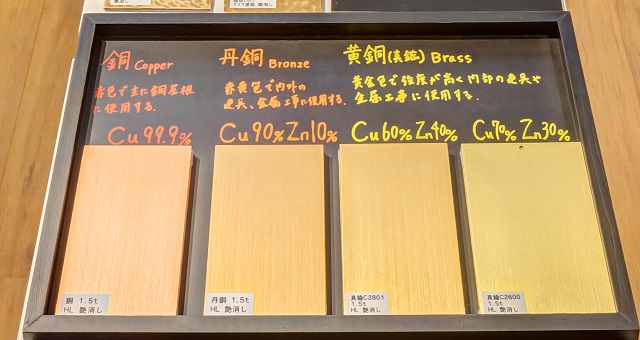 艶消し
クリア塗装 艶消し
銅 Copper
赤色で主に銅屋根
に使用する.
Cu 99.9%
丹銅 Bronze
赤黄色で内外の
建具、金属工事に使用する.
Cu 90% Zn 10%
黄銅(真鍮) Brass
黄金色で強度が高く内部の建具や
金属工事に使用する.
Cu 60% Zn 40%
Cu 70% Zn 30%
銅 1.5t
HL 艶消し
丹銅 1.5t
HL 艶消し
真鍮C2801
1.5t
HL 艶消し
真鍮C2600
1.5t
HL 艶消し